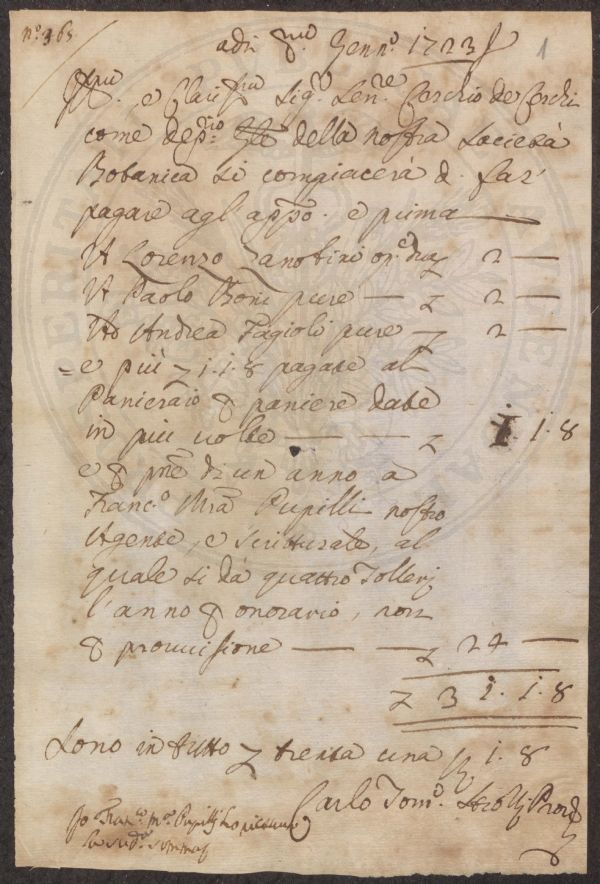 n.o 365
adi p.mo Genn.o 1723
1
Ill.mo e Clariss.mo Sig.r Sen.re Cerchio de Cerchi
come dep.rio della nostra Società
Botanica si compiacerà di far
pagare agl app.o e prima
A Lorenzo Zanobini op.e due 2 —
A Paolo Boni pure — 2 —
Ad Andrea Fagioli pure — 2 —
e più 1.1.8 pagate al
Panieraio p paniere date
in più volte — — 1.1.8
e p un anno a
Franc.o Mra Pupilli nostro
Agente, e Scritturale, al
quale si dà quattro Tolleri
l'anno p onorario, non
p provvisione — — 24 —
31.1.8
Sono in tutto trenta una 1.8
Carlo Tom.o Strozzi Prov.
Io Fran.co M.a Pupilli ho ricevuto
la sud.a somma